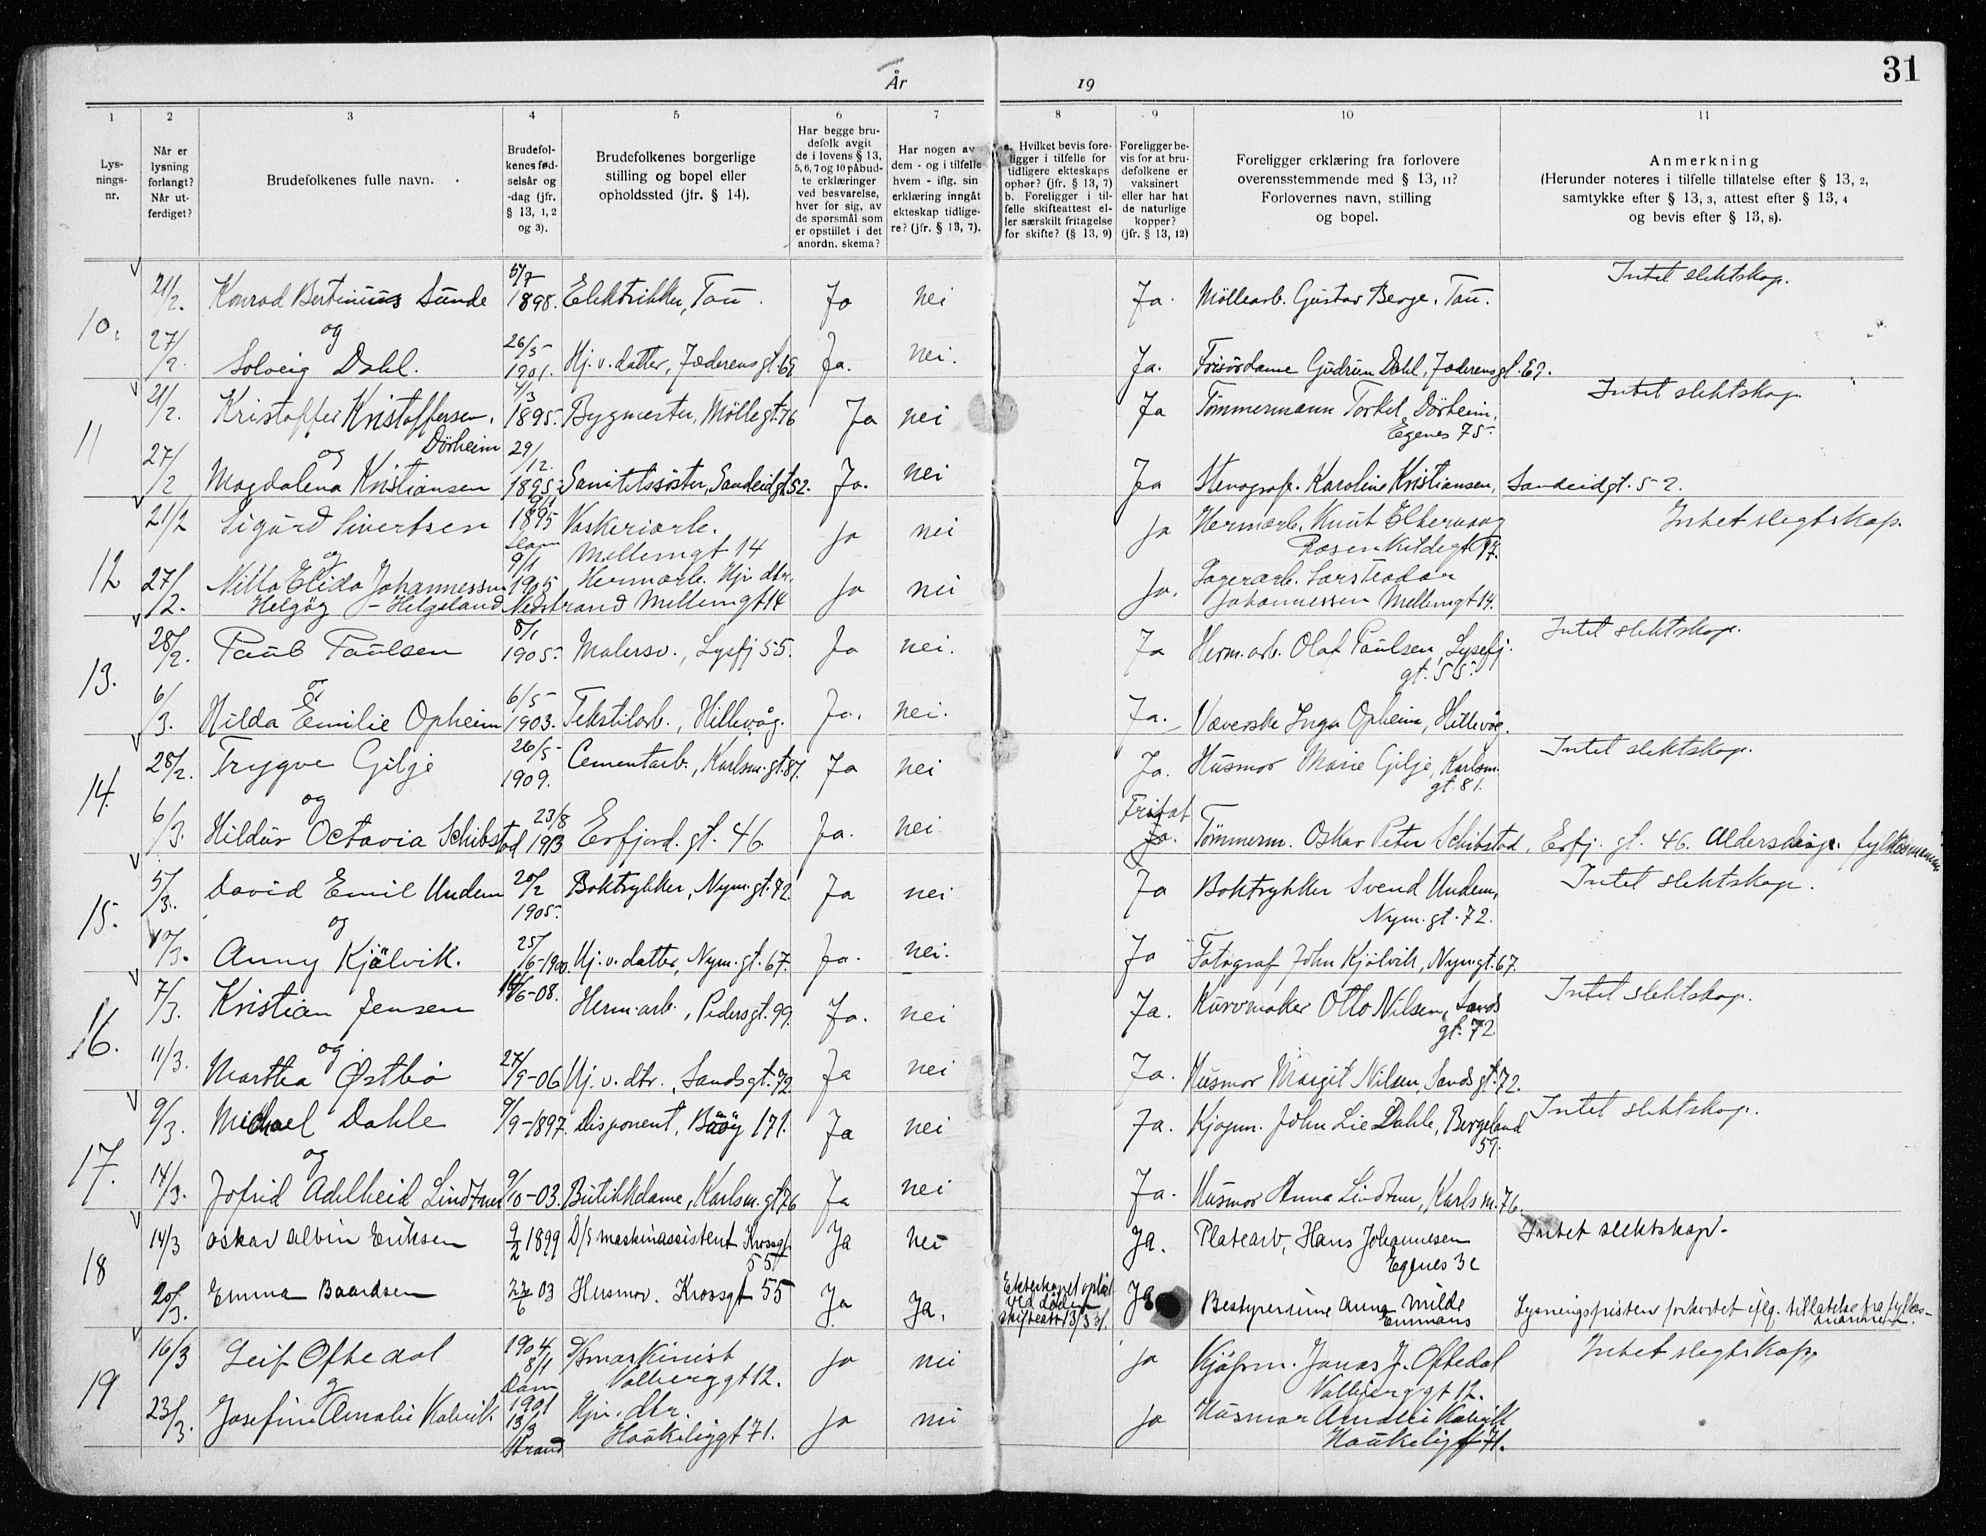 31
År 19
1 2 3 4 5 6 7 8 9 10 11
Lys-
nings-
nr.
Når er
lysning
forlangt?
Når ut-
ferdiget?
Brudefolkenes fulle navn.
Brudefol-
kenes fød-
selsår og
-dag (jfr.
§ 13, 1, 2
og 3).
Brudefolkenes borgerlige
stilling og bopel eller
opholdssted (jfr. § 14).
Har begge bru-
defolk avgit
de i lovens § 13,
5, 6, 7 og 10 påbud-
te erklæringer
ved besvarelse,
hver for sig, av
de spørsmål som
er opstillet i det
anordn. skema?
Har nogen av
dem - og i tilfelle
hvem - iflg. sin
erklæring inngått
ekteskap tidlige-
re? (jfr. § 13, 7).
a. Hvilket bevis fore-
ligger i tilfelle for
tidligere ekteskaps
ophør? (jfr. § 13, 7)
b. Foreligger i til-
felle skifteattest el-
ler særskilt fritagelse
for skifte? (§ 13, 9)
Foreligger be-
vis for at bru-
defolkene er
vaksinert
eller har hat
de naturlige
kopper?
(jfr. § 13, 12)
Foreligger erklæring fra forlovere
overensstemmende med § 13, 11?
Forlovernes navn, stilling
og bopel.
Anmerkning
(Herunder noteres i tilfelle tillatelse efter § 13, 2,
samtykke efter § 13, 3, attest efter § 13, 4
og bevis efter § 13, 8).
10. 21/2. Konrad Bertinius Sunde 5/7 1898. Elektriker, Tau. Ja nei Ja. Möllearb. Gustav Berge, Tau. Intet slektskap.
og
27/2. Solveig Dahl. 26/5 1901. Hj. v. datter, Jæderensgt. 69 Ja. nei. Ja. Frisördame Gudrun Dahl, Jæderensgt. 69.
11 21/2. Kristoffer Kristoffersen 4/3 1895. Bygmester, Möllegt. 76 Ja nei Ja Tömmermann Torkel Dörheim, Intet slektskap.
Dörheim Egenes 75.
og
27/2 Magdalena Kristiansen 29/12. 1895. Sanitetssöster, Sandeidgt. 52. Ja. nei Ja Stenograf. Karoline Kristiansen, Sandeidgt. 52.
12 21/2 Sigurd Sivertsen 1895 Vaskeriarb. ja nei ja Hermarb. Knut Intet slegtskap.
Mellemgt 14 Rosenkildegt 17.
og
27/2. Nilla Elida Johannessen 9/1 1905 Hermarb. Hjv dtr. ja nei ja. Lagerarb. Lars Teodor
Helgöy - Helgeland Nedstrand Mellemgt 14 Johannessen Mellemgt 14.
13. 28/2. Paul Paulsen 8/1 1905. Malersv., Lysefj 55. Ja nei. Ja Herm.arb. Olaf Paulsen, Lysefj. Intet slektskap.
gt. 55.
og
6/3. Hilda Emilie Opheim 6/5 1903. Tekstilarb., Hillevåg. Ja. nei. Ja. Væverske Inga Opheim, Hillevåg.
14. 28/2. Trygve Gilje 26/5 1909. Cementarb., Karlsm. gt. 81. Ja nei Ja. Husmor Marie Gilje, Karlsm. Intet slektskap.
gt. 81.
og Fritat
6/3. Hildur Octavia Schibstad 23/8 1913 Erfjord. gt. 46. Ja. nei Ja. Tömmerm. Oskar Peter Schibstad, Erfj. gt. 46. Aldersdisp. fylkesmannen
15. 5/3. David Emil Undem 20/2 1905. Boktrykker, Nym. gt. 72. Ja nei Ja Boktrykker Svend Undem, Intet slektskap.
Nym. gt. 72.
og
10/3. Anny Kjölvik. 25/6-1900. Hj. v. datter, Nym. gt. 67. Ja. nei. Ja Fotograf John Kjölvik, Nymgt. 67.
16. 7/3. Kristian Jensen 16/6-08. Herm.arb., Pedersgt. 99. Ja. nei Ja. Kurvmaker Otto Nilsen, Sands Intet slektskap.
gt. 72.
og
11/3. Martha Østbø 27/9-06 Hj. v. dtr., Sandsgt. 72. Ja nei Ja. Husmor Margit Nilsen, Sandsgt. 72.
17. 9/3. Michael Dahle 9/9-1897. Disponent, Buöy 171. Ja nei Ja. Kjøpm. John Lie Dahle, Bergeland Intet slektskap.
59.
og
14/3. Jofrid Adelheid Lindtner 9/10-03. Butikkdame, Karlsm. gt 76 Ja nei Ja. Husmor Anna Lindtner, Karlsm. 76.
18 14/3 Oskar Albin Eriksen 9/2 1899 D/S maskinassistent Krossgt Ja nei Ja. Platearb, Hans Johannesen Intet slektskap.
55 Egenes 3c
20/3. Emma Baardsen 22/6 03 Husmor. Krossgt 55 Ja Ja. Ekteskapet opløst Ja Bestyrerinne Anna Milde Lysningsfristen forkortet iflg. tillatelse fra fylkes-
ved döden Emmaus mannen.
skifteatt 13/3 31.
19 16/3 Leif Oftedal 1904 8/1 D/Smaskinist ja nei ja Kjøpm. Jonas J. Oftedal Intet slegtskap.
Dom Valberggt 12. Valbjerggt 12.
og
23/3. Josefine Amalie Kalvik 1901 13/3 Hjv. dtr. ja nei ja Husmor Amalie Kalvik
Strand Haukeligt 71. Haukeligt 71.